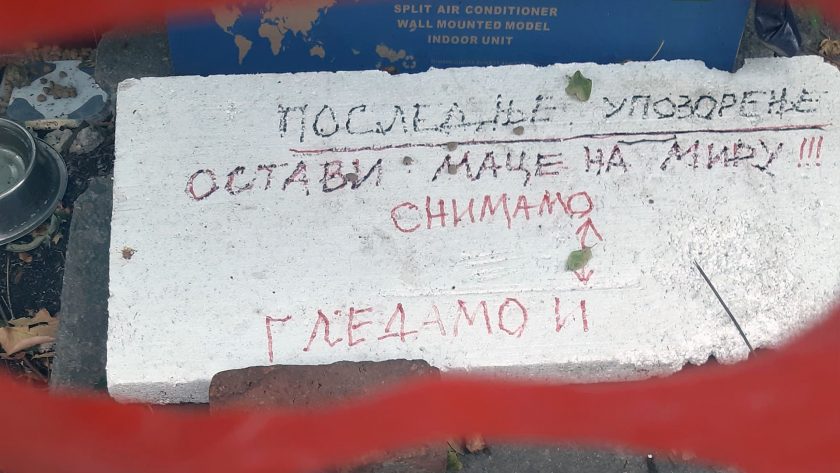 SPLIT AIR CONDITIONER
WALL MOUNTED MODEL
INDOOR UNIT
ПОСЛЕДЊЕ УПОЗОРЕЊЕ
ОСТАВИ МАЦЕ НА МИРУ !!!
СНИМАМО
ГЛЕДАМО И